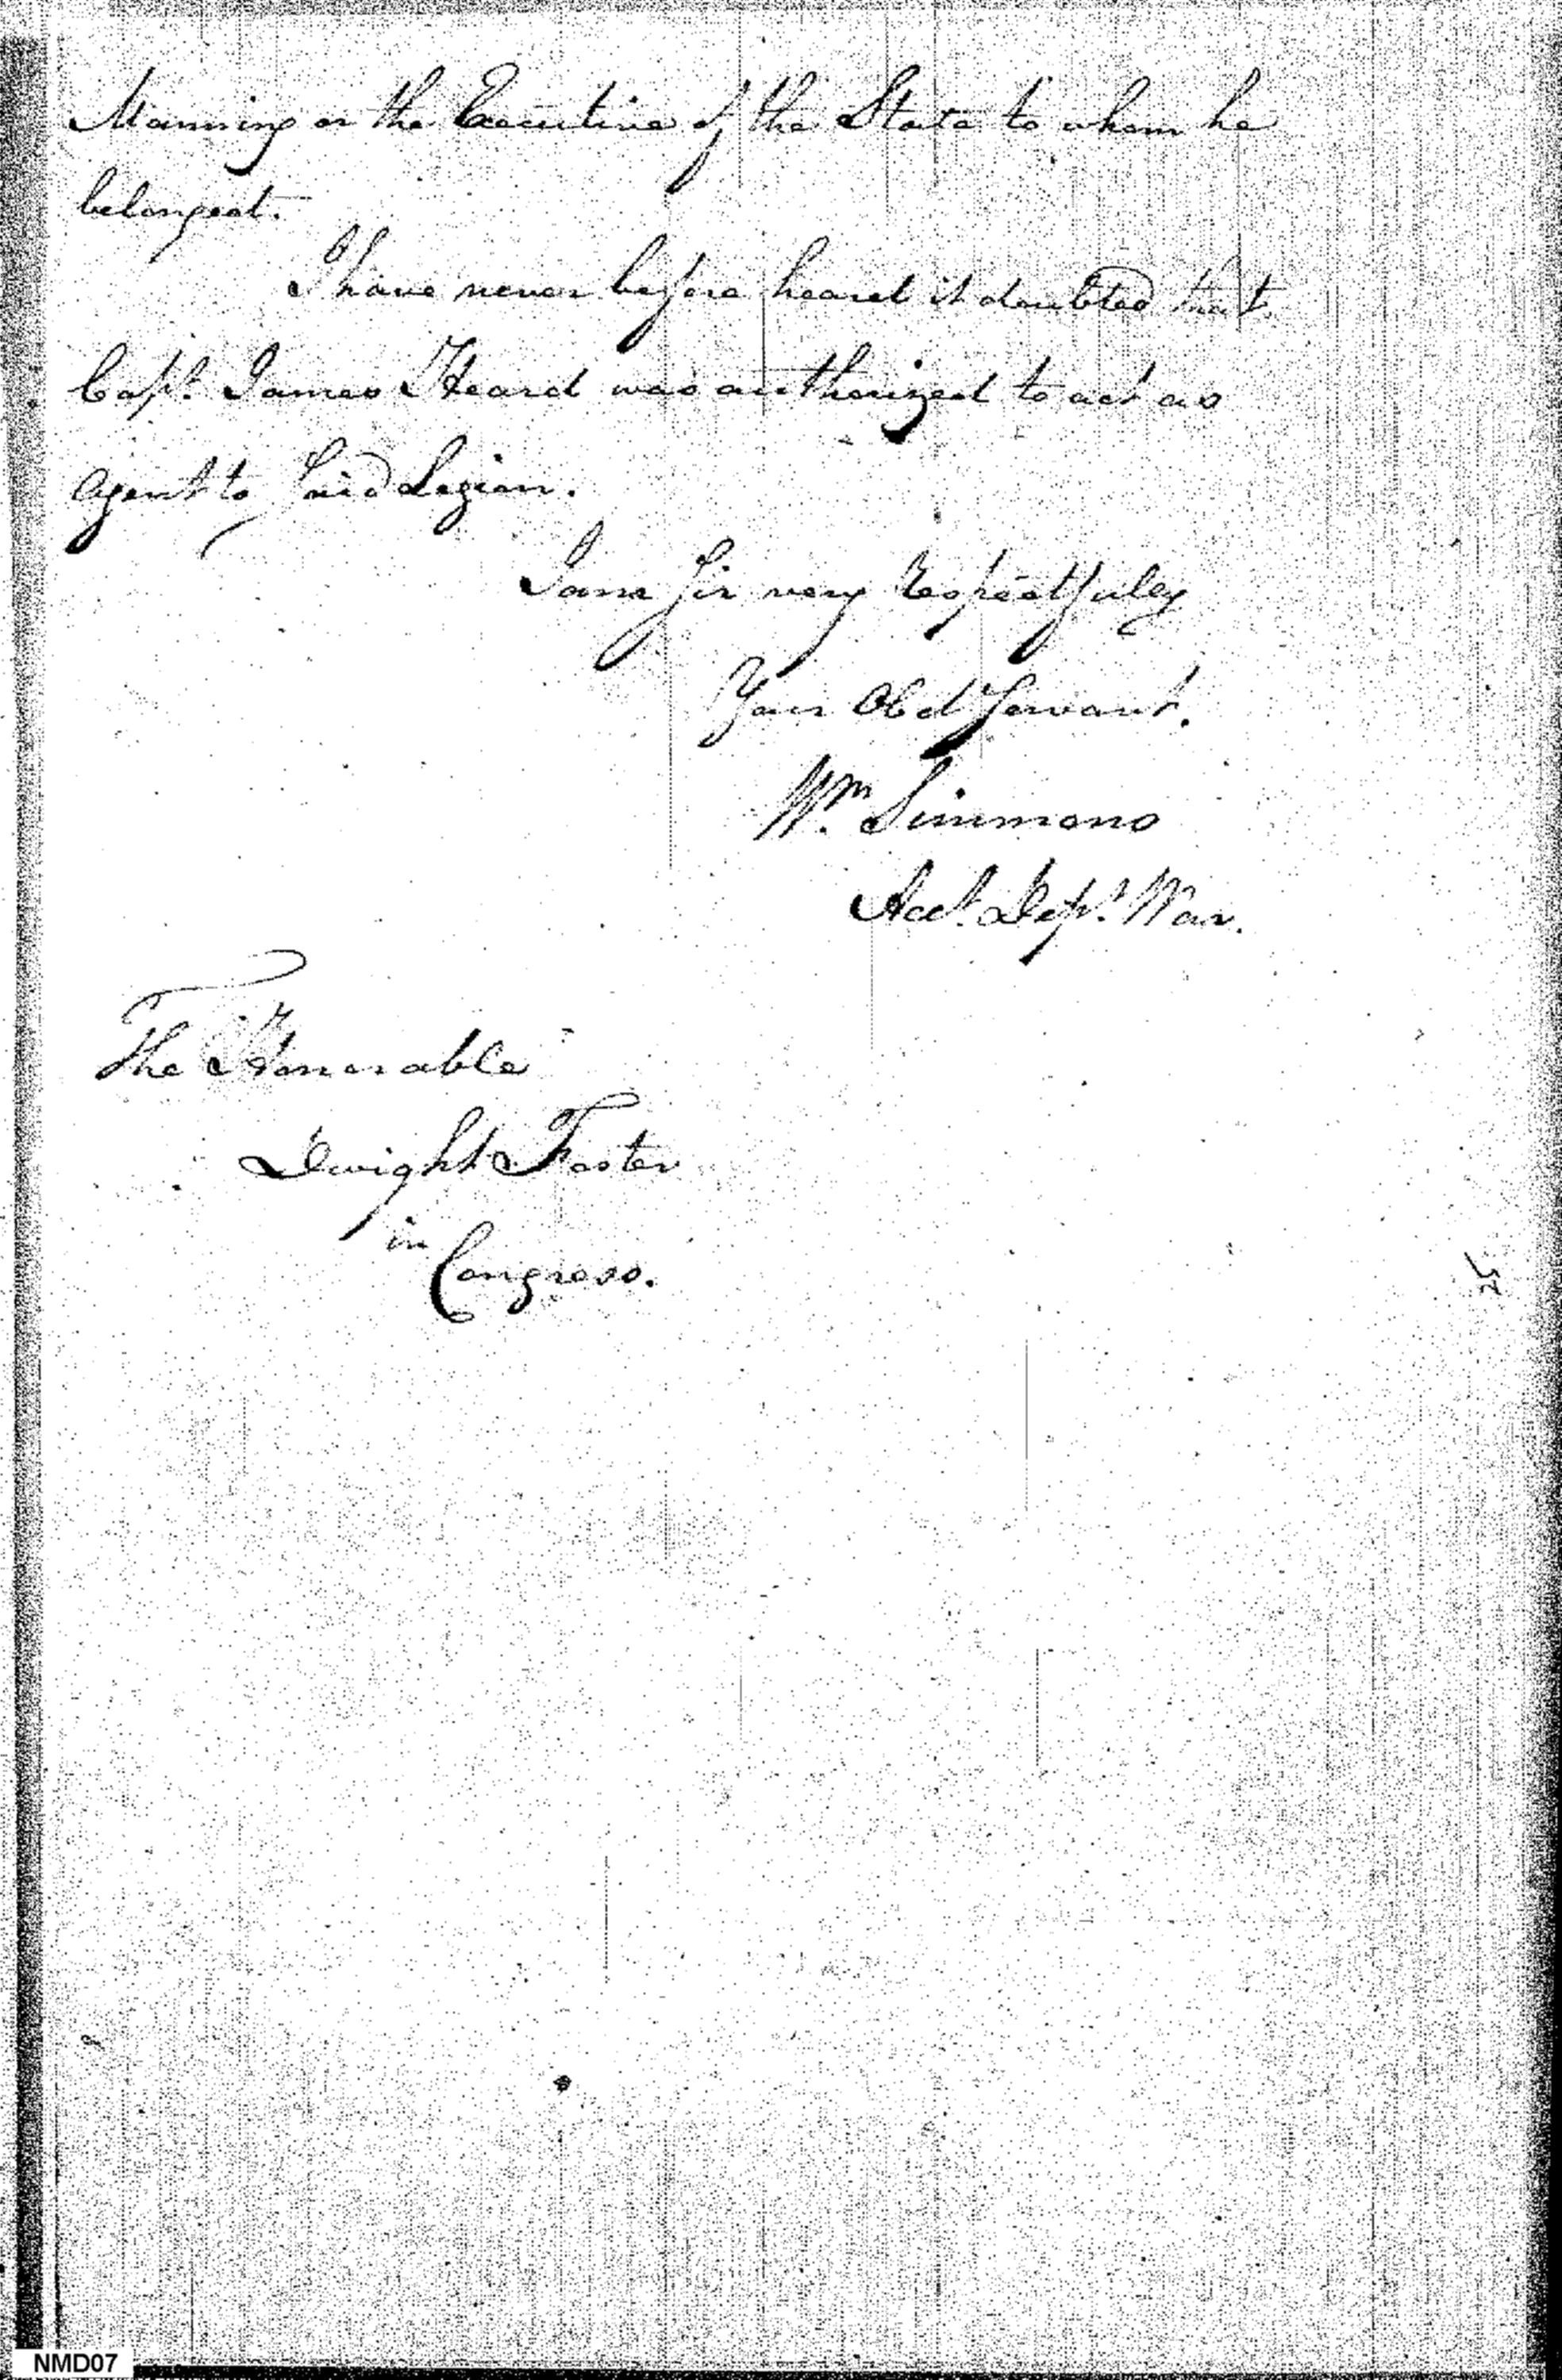 Manning or the Executive of the State to whom he
belonged.
I have never before heard it doubted that
Capt. James Heard was authorized to act as
Agent to Said Legion.
I am Sir very respectfully
Your Obd Servant.
Wm Simmons
Acct. Dept. War.
The Honorable
Dwight Foster
in
Congress.
NMD07